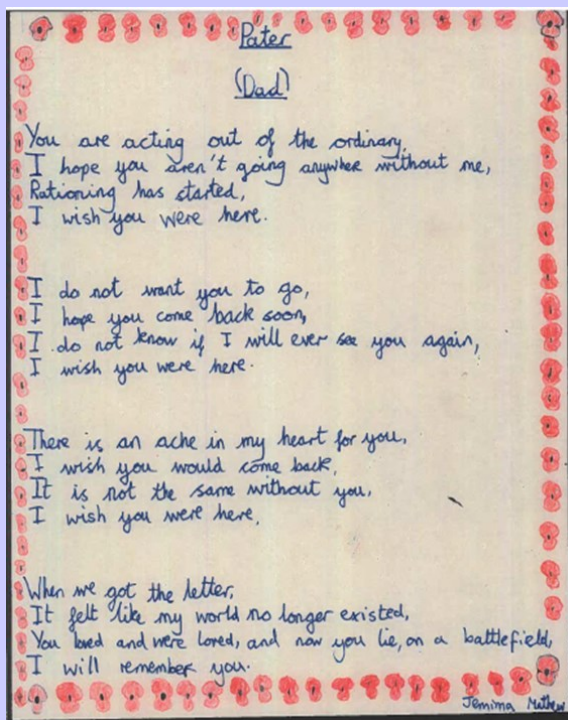 Pater
(Dad)
You are acting out of the ordinary.
I hope you aren't going anywher without me,
Rationing has started,
I wish you were here.
I do not want you to go,
I hope you come back soon,
I do not know if I will ever see you again,
I wish you were here.
There is an ache in my heart for you,
I wish you would come back,
It is not the same without you,
I wish you were here,
When we got the letter,
It felt like my world no longer existed,
You loved and were loved, and now you lie, on a battlefield,
I will remember you.
Jemima